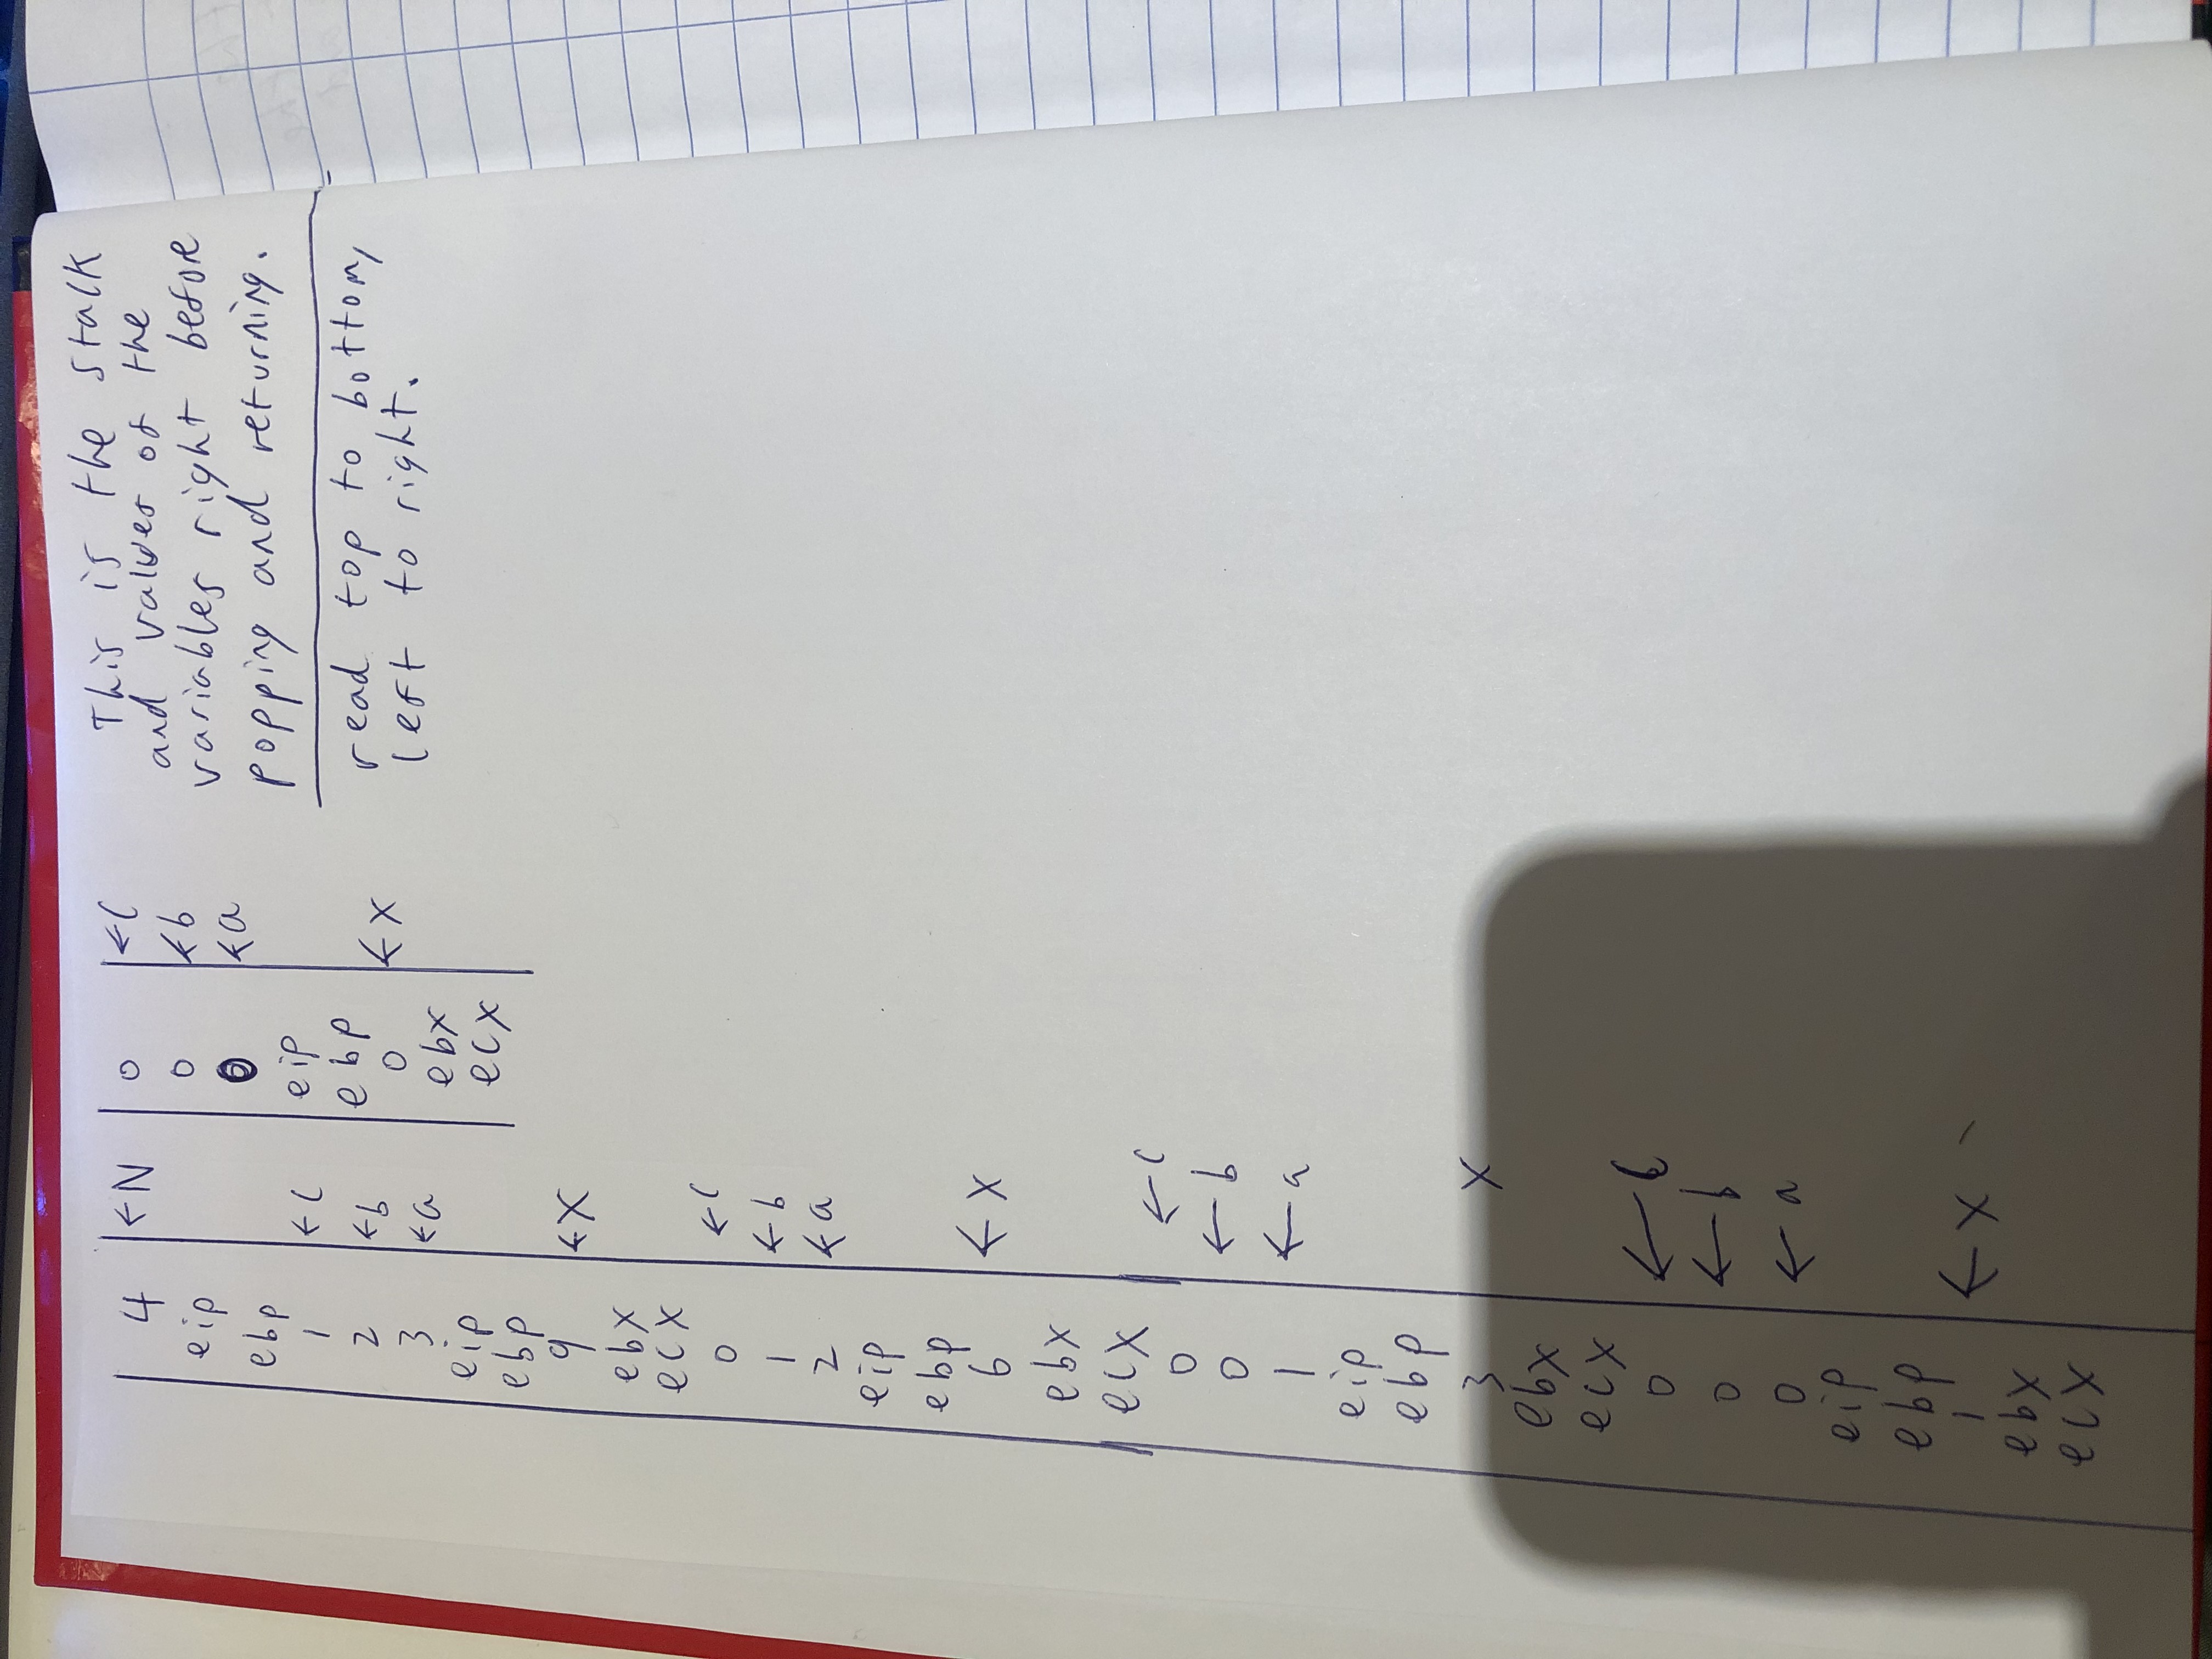 4 ← N
eip
ebp
1 ← C
2 ← b
3 ← a
eip
ebp
9 ← X
ebx
ecx
0 ← C
1 ← b
2 ← a
eip
ebp
6 ← X
ebx
ecx
0 ← C
0 ← b
1 ← a
eip
ebp
3 X
ebx
ecx
0 ← C
0 ← b
0 ← a
eip
ebp
1 ← X
ebx
ecx
0 ← C
0 ← b
0 ← a
eip
ebp
0 ← X
ebx
ecx
This is the stalk
and values of the
variables right before
popping and returning.
read top to bottom,
left to right.